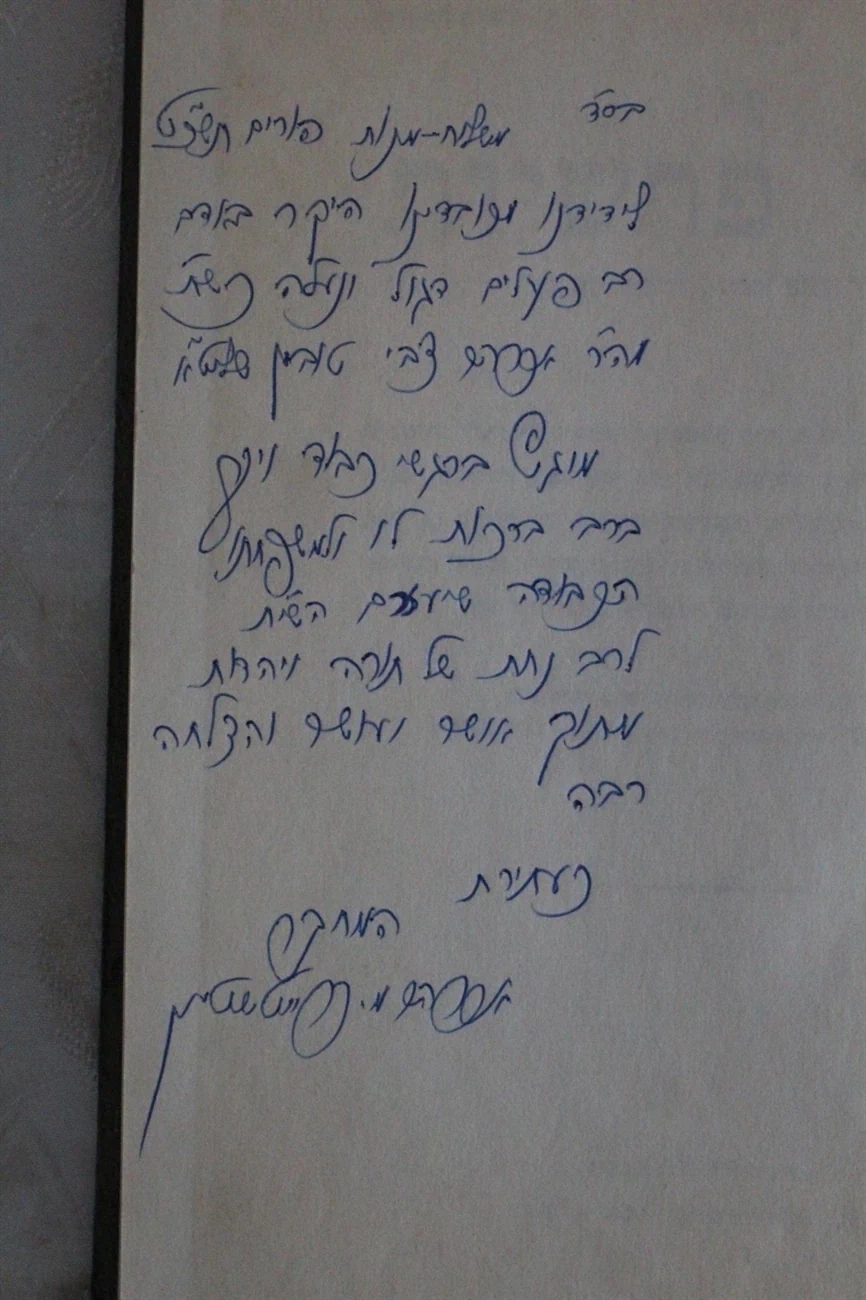 בס״ד משלוח-מנות פורים תשכ״ט
לידידנו מכובדינו היקר באדם
רב פעלים דגול ונעלה כש״ת
מה״ר אברהם צבי טובין שליט״א
מוגש ברגשי כבוד ויקר
ברב ברכות לו ולמשפחתו
הכבודה שיעזרם השי״ת
לרב נחת של תורה ויהדות
מתוך אושר ועושר והצלחה
רבה
כעתירת
המחבר
אברהם מ.